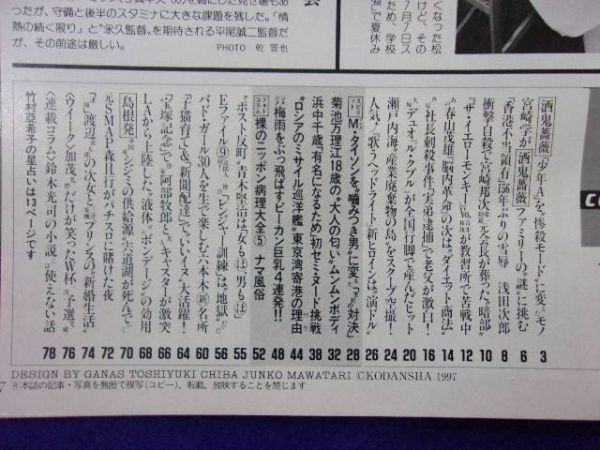 ったが、守備と後半のスタミナに大きな課題を残した。「情
熱の続く限り」と"永久監督"を期待される平尾誠二監督だ
が、その前途は厳しい。
PHOTO 乾 晋也
くなった松
けど、その
7月7日ス
ため、学校
強"で夏休み
酒鬼薔薇 「少年A」を"惨殺モード"に変えたモノ 3
宮崎学が「酒鬼薔薇」ファミリーの"謎"に挑む 6
「香港不当領有」156年ぶりの雪辱 浅田次郎 8
衝撃自殺で宮崎邦次元会長が葬った"暗部" 10
ザ・イエローモンキー 吉井が教習所で苦戦中 12
春山茂雄『脳内革命』の次は"ダイエット商法" 14
「デュオ・ル・クブル」が全国行脚で産んだヒット 16
「社長刺殺事件」"実弟逮捕"で老父が激白! 20
瀬戸内海"産業廃棄物の島"をスクープ空撮! 24
人気"歌うヘッドライト"新ヒロインは"演ドル" 26
M・タイソンを"噛みつき男"に変えた 対決" 28
菊池万理江18歳の"大人の匂い"ムンムンボディ 32
浜中千歳「有名になるため」初セミヌード挑戦 38
"ロシアのミサイル巡洋艦"東京湾寄港の理由 44
梅雨をぶっ飛ばすピーカン巨乳4連発!! 48
裸のニッポン病理大全⑤ ナマ風俗 52
"ポスト反町"青木堅治は「女も〇、男も〇」 55
Eファイル⑨ 「レンジャー訓練」は"地獄" 56
バド・ガール30人を生で楽しむ六本木(新)名所 60
「子猫育て&新聞配達」で"いいイヌ"大活躍! 64
「宝塚記念」で"阿部牧郎とキャスターが激突 66
LAから上陸した"液体"ボンデージ"の効用 68
島根発 シジミの供給源"宍道湖が死んでく" 70
元SMAP森且行がパチスロに賭けた夜 72
『渡辺 の次女とプリンスの"新婚生活" 74
〈ウイーク〉加茂だけが笑った「W杯一次予選」 76
〈連載コラム〉鈴木光司の小説に使えない話 78
竹村亜希子の星占いは13ページです
DESIGN BY GANAS TOSHIYUKI CHIBA JUNKO MAWATARI ©KODANSHA 1997
®本誌の記事・写真を無断で複写(コピー)、転載、放映することを禁じます